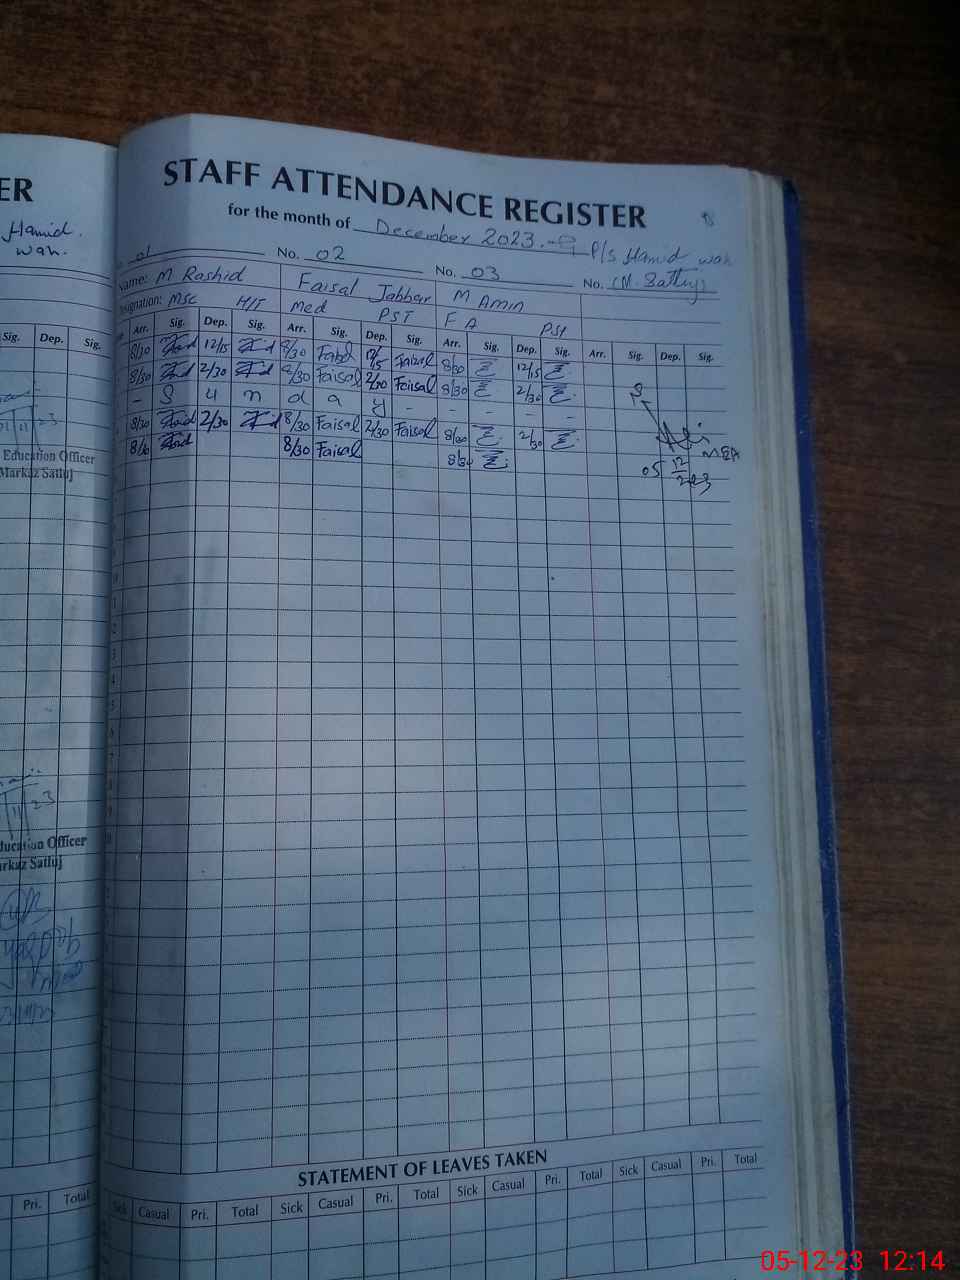 ER
STAFF ATTENDANCE REGISTER
for the month of December 2023. G P/S Hamid wah
Hamid.
wah.
01 No. 02 No. 03 No. (M. Sattuj)
Name: M Rashid Faisal Jabbar M Amin
Designation: MSC H/T Med PST F A PST
Sig. Dep. Sig. Arr. Sig. Dep. Sig. Arr. Sig. Dep. Sig. Arr. Sig. Dep. Sig. Arr. Sig. Dep. Sig.
8/30 12/15 8/30 Faisal 12/15 Faisal 8/30 12/15
8/30 2/30 8/30 Faisal 2/30 Faisal 8/30 2/30
- S u n d a y - - - - -
8/30 2/30 8/30 Faisal 2/30 Faisal 8/30 2/30
8/30 8/30 Faisal 8/30
MEA
05 12 2023
Education Officer
Markaz Satluj
11 23
ducation Officer
arkaz Satluj
STATEMENT OF LEAVES TAKEN
Pri. Total Sick Casual Pri. Total Sick Casual Pri. Total Sick Casual Pri. Total Sick Casual Pri. Total
05-12-23 12:14